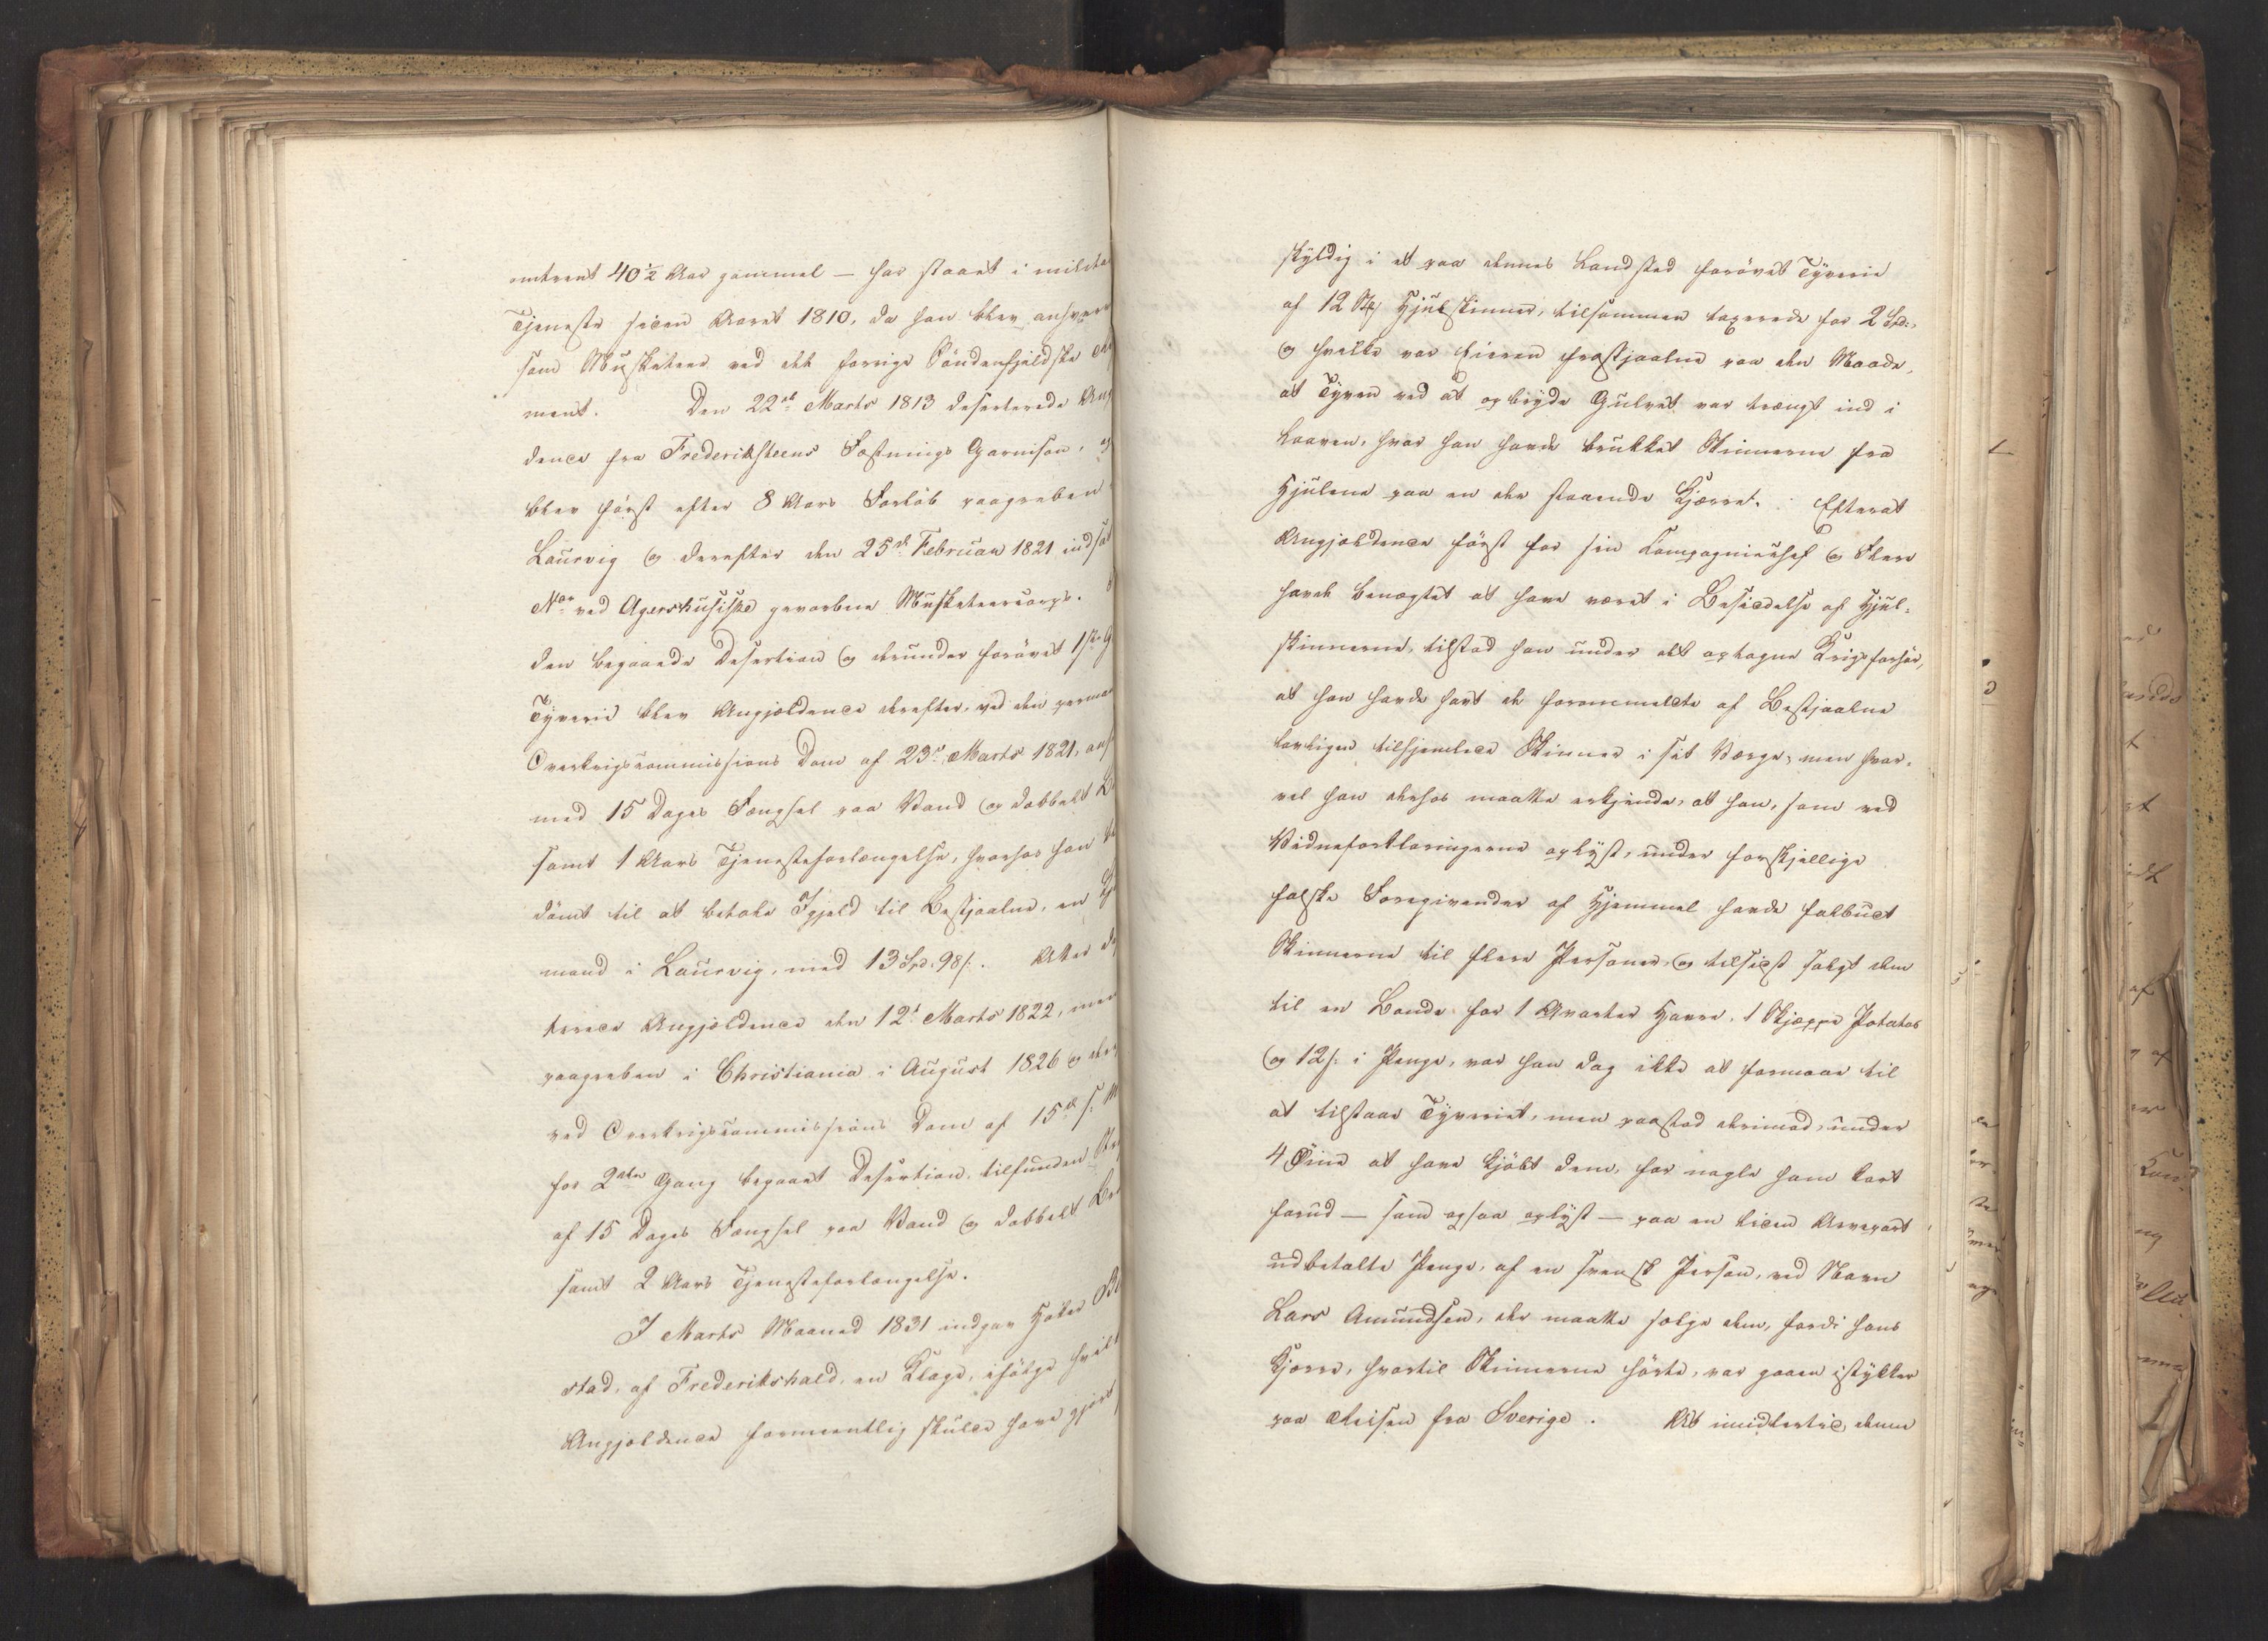 omtrent 40½ Aar gammel — har staaet i milita
Tjeneste siden Aaret 1810, da han blev anhvervet
som Musketeer ved det forrige Söndenfjeldske Re
ment. Den 22de Marts 1813 deserterede Ang
dende fra Frederiksteens Fæstnings Garnison, og
blev først efter 8 Aars Forløb paagreben
Laurvig og derefter den 25de Februar 1821 indsat
Nor ved Agershusiske gevorbne Musketeercorps.
den begaaede Desertion og derunder forövet 1ste G
Tyverie blev Angjeldende derefter, ved den perma
Overkrigscommissions Dom af 23de Marts 1821, ans
med 15 Dages Fængsel paa Vand og dobbelt
samt 1 Aars Tjenesteforlængelse, hvorhos han
dömt til at betale Igjeld til Bestjaalne, en
mand i Laurvig, med 13 Spd. 98 s. Atter de
terede Angjeldende den 12te Marts 1822, men
paagreben i Christiania i August 1826 og der
ved Overkrigscommissions Dom af 15de s: M
for 2den Gang begaaet Desertion, tilfunden
af 15 Dages Fængsel paa Vand og dobbelt
samt 2 Aars Tjenesteforlængelse.
I Marts Maaned 1831 indgav Høker
stad, af Frederikshald, en Klage, ifölge hvil
Angjeldende formeentlig skulde have gjort
skyldig i et paa dennes Landsted forövet Tyverie
af 12 Stk Hjulskinner, tilsammen taxerede for 2 Spd.,
og hvilke var Eieren frastjaalne paa den Maade,
at Tyven ved at opbryde Gulvet var trængt ind i
Laaven, hvor han havde brukket Skinnerne fra
Hjulene paa en der staaende Kjærre. Efterat
Angjeldende först for sin Compagniechef og Flere
havde benægtet at have været i Besiddelse af Hjul-
skinnerne, tilstod han under det optagne Krigsforhör,
at han havde havt de forommeldte af Bestjaalne
lovligen tilhjemlede Skinner i sit Værge; men hvor-
vel han derhos maatte erkjende, at han, som ved
Vidneforklaringerne oplyst, under forskjellige
falske Foregivender af Hjemmel havde falbudt
Skinnerne til flere Personer, og tilsidst solgt dem
til en Bonde for 1 Qvarter Havre, 1 Skjæppe Potatos
og 12 s. i Penge, var han dog ikke at formaae til
at tilstaae Tyveriet, men paastod derimod, under
4 Øine at have kjöbt dem, for nogle ham kort
forud — som ogsaa oplyst — paa en liden Arvepart
udbetalte Penge, af en svensk Person, ved Navn
Lars Amundsen, der maatte sælge dem, fordi hans
Kjærre, hvortil Skinnerne hörte, var gaaen istykker
paa Reisen fra Sverige. At imidlertid denne